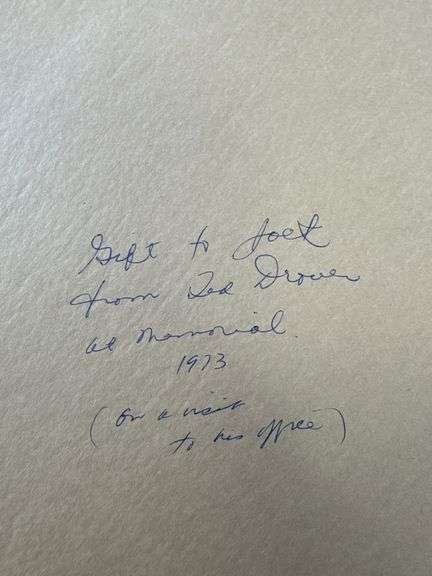 Gift to Joel
from Ted Drover
at Memorial.
1973
(on a visit
to his office)